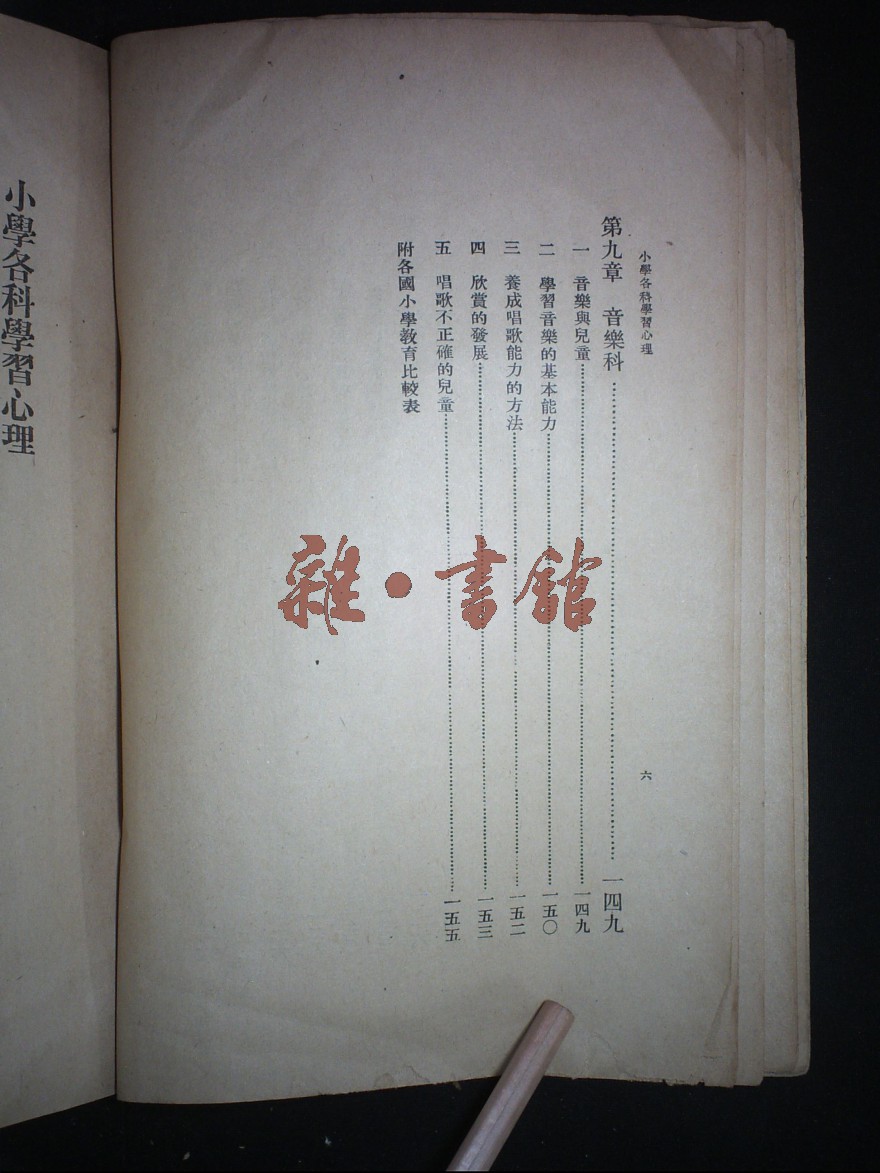 小學各科學習心理
六
第九章 音樂科……一四九
一 音樂與兒童……一四九
二 學習音樂的基本能力……一五〇
三 養成唱歌能力的方法……一五二
四 欣賞的發展……一五三
五 唱歌不正確的兒童……一五五
附各國小學教育比較表
小學各科學習心理
雜·書館